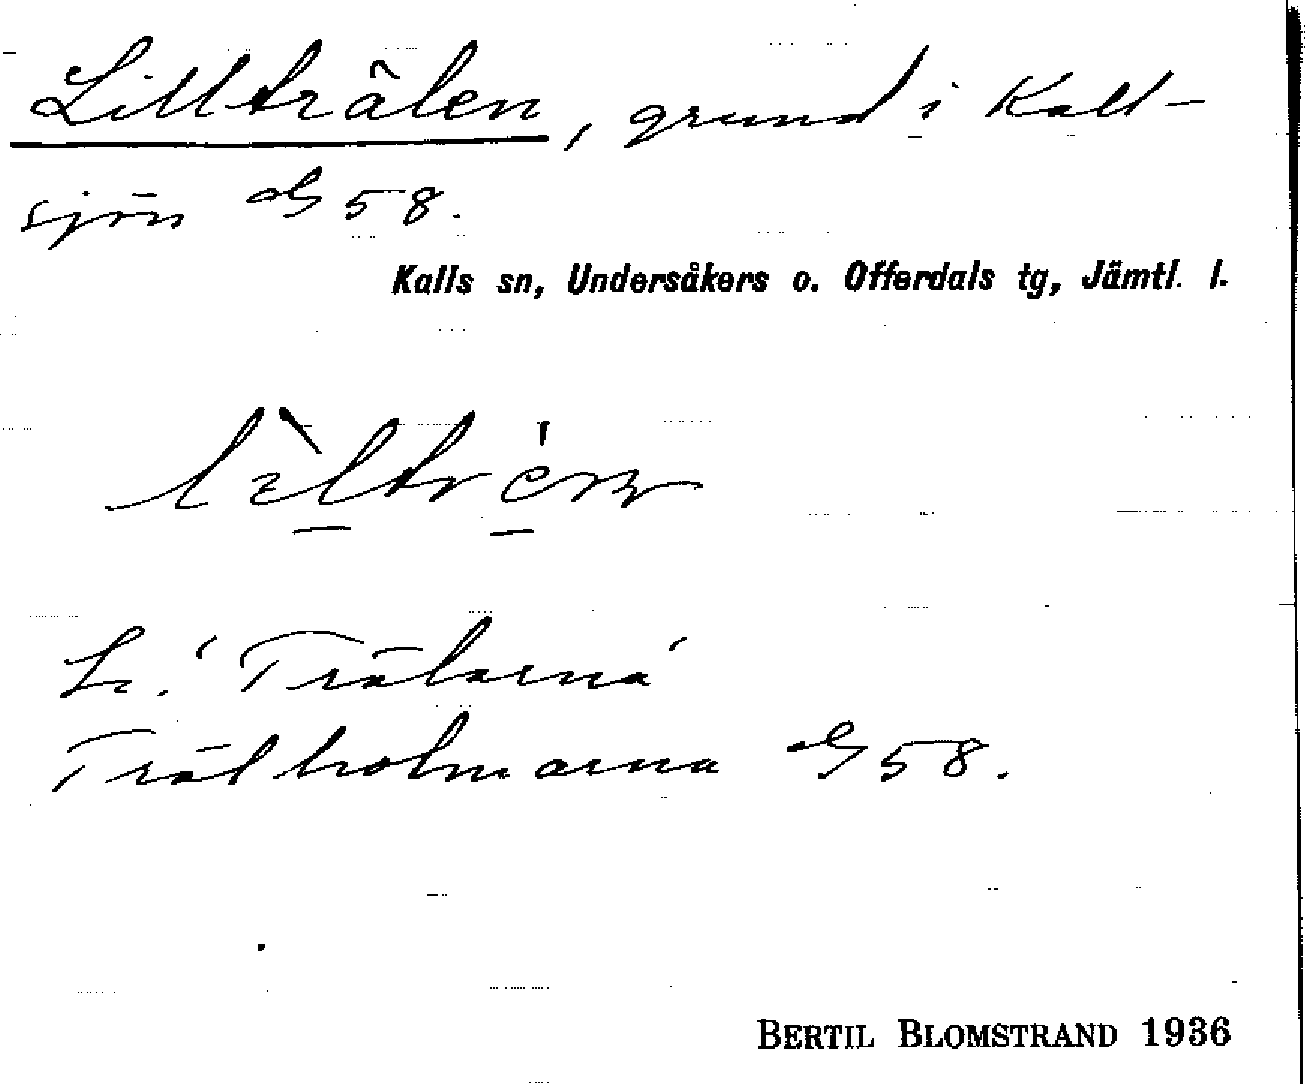 Lillträlen, grund i Kall-
sjön G 58.
Kalls sn, Undersåkers o. Offerdals tg, Jämtl. l.
Se. 'Trälarna'
Trälholmarna G 58.
BERTIL BLOMSTRAND 1936